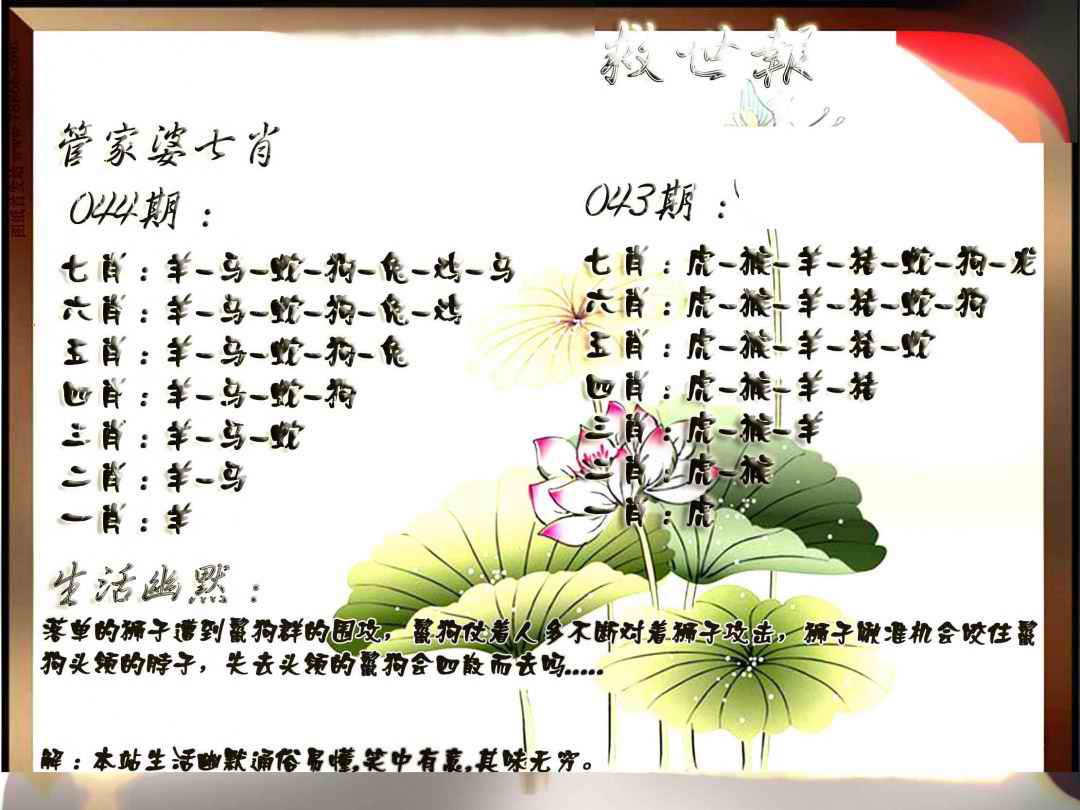 救世報
管家婆七肖
044期：
七肖：羊-马-蛇-狗-兔-鸡-马
六肖：羊-马-蛇-狗-兔-鸡
五肖：羊-马-蛇-狗-兔
四肖：羊-马-蛇-狗
三肖：羊-马-蛇
二肖：羊-马
一肖：羊
043期：
七肖：虎-猴-羊-猪-蛇-狗-龙
六肖：虎-猴-羊-猪-蛇-狗
五肖：虎-猴-羊-猪-蛇
四肖：虎-猴-羊-猪
三肖：虎-猴-羊
二肖：虎-猴
一肖：虎
生活幽默：
落单的狮子遭到鬣狗群的围攻，鬣狗仗着人多不断对着狮子攻击，狮子瞅准机会咬住鬣
狗头领的脖子，失去头领的鬣狗会四散而去吗.....
解：本站生活幽默通俗易懂,笑中有意,其味无穷。